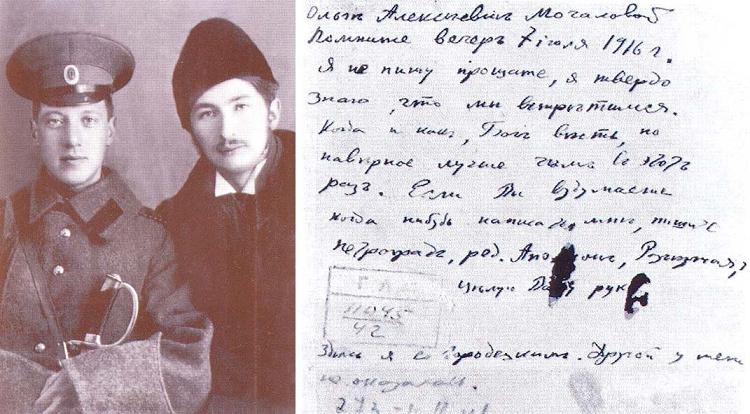 Ольгѣ Алексѣевнѣ Мочаловой
Помните вечеръ 7 iюля 1916 г.
Я не пишу прощайте, я твердо
знаю, что мы встрѣтимся.
Когда и какъ, Богъ вѣсть, но
навѣрное лучше чѣмъ въ этотъ
разъ. Если Вы вздумаете
когда нибудь написать мнѣ, пишите
Петроградъ, ред. Аполлонъ, Разъѣзжая, 7
Цѣлую Вашу руку
Здѣсь я съ Городецкимъ. Другой у меня
не оказалось.